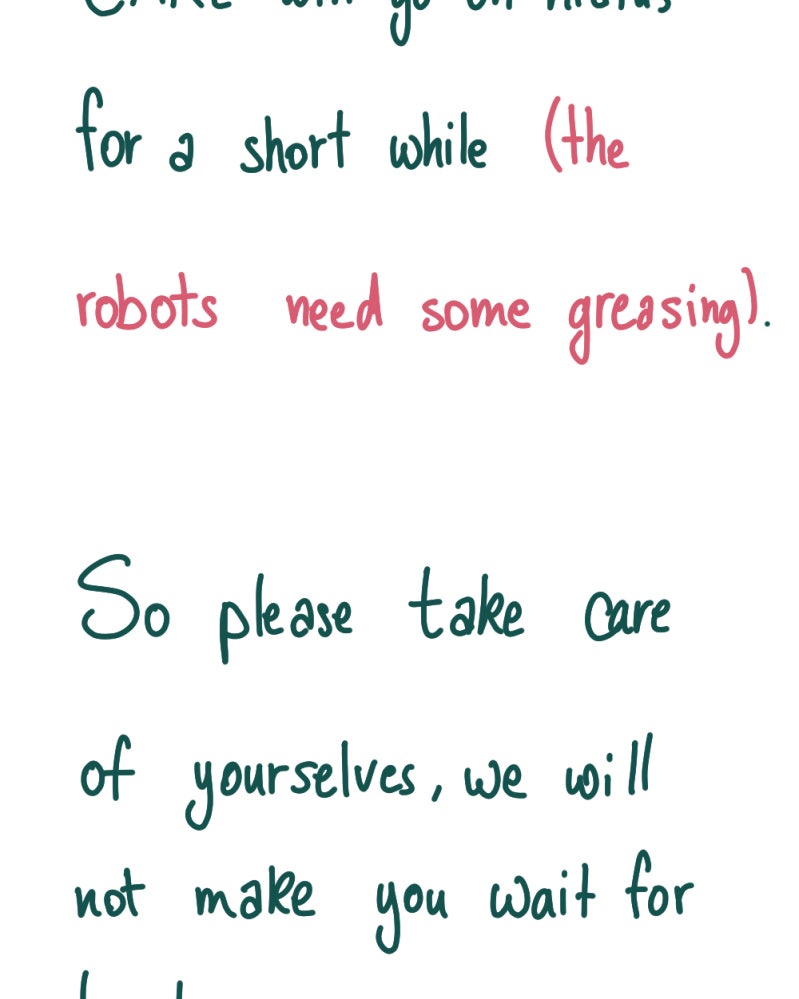 will go on hiatus
for a short while (the
robots need some greasing).
So please take care
of yourselves, we will
not make you wait for